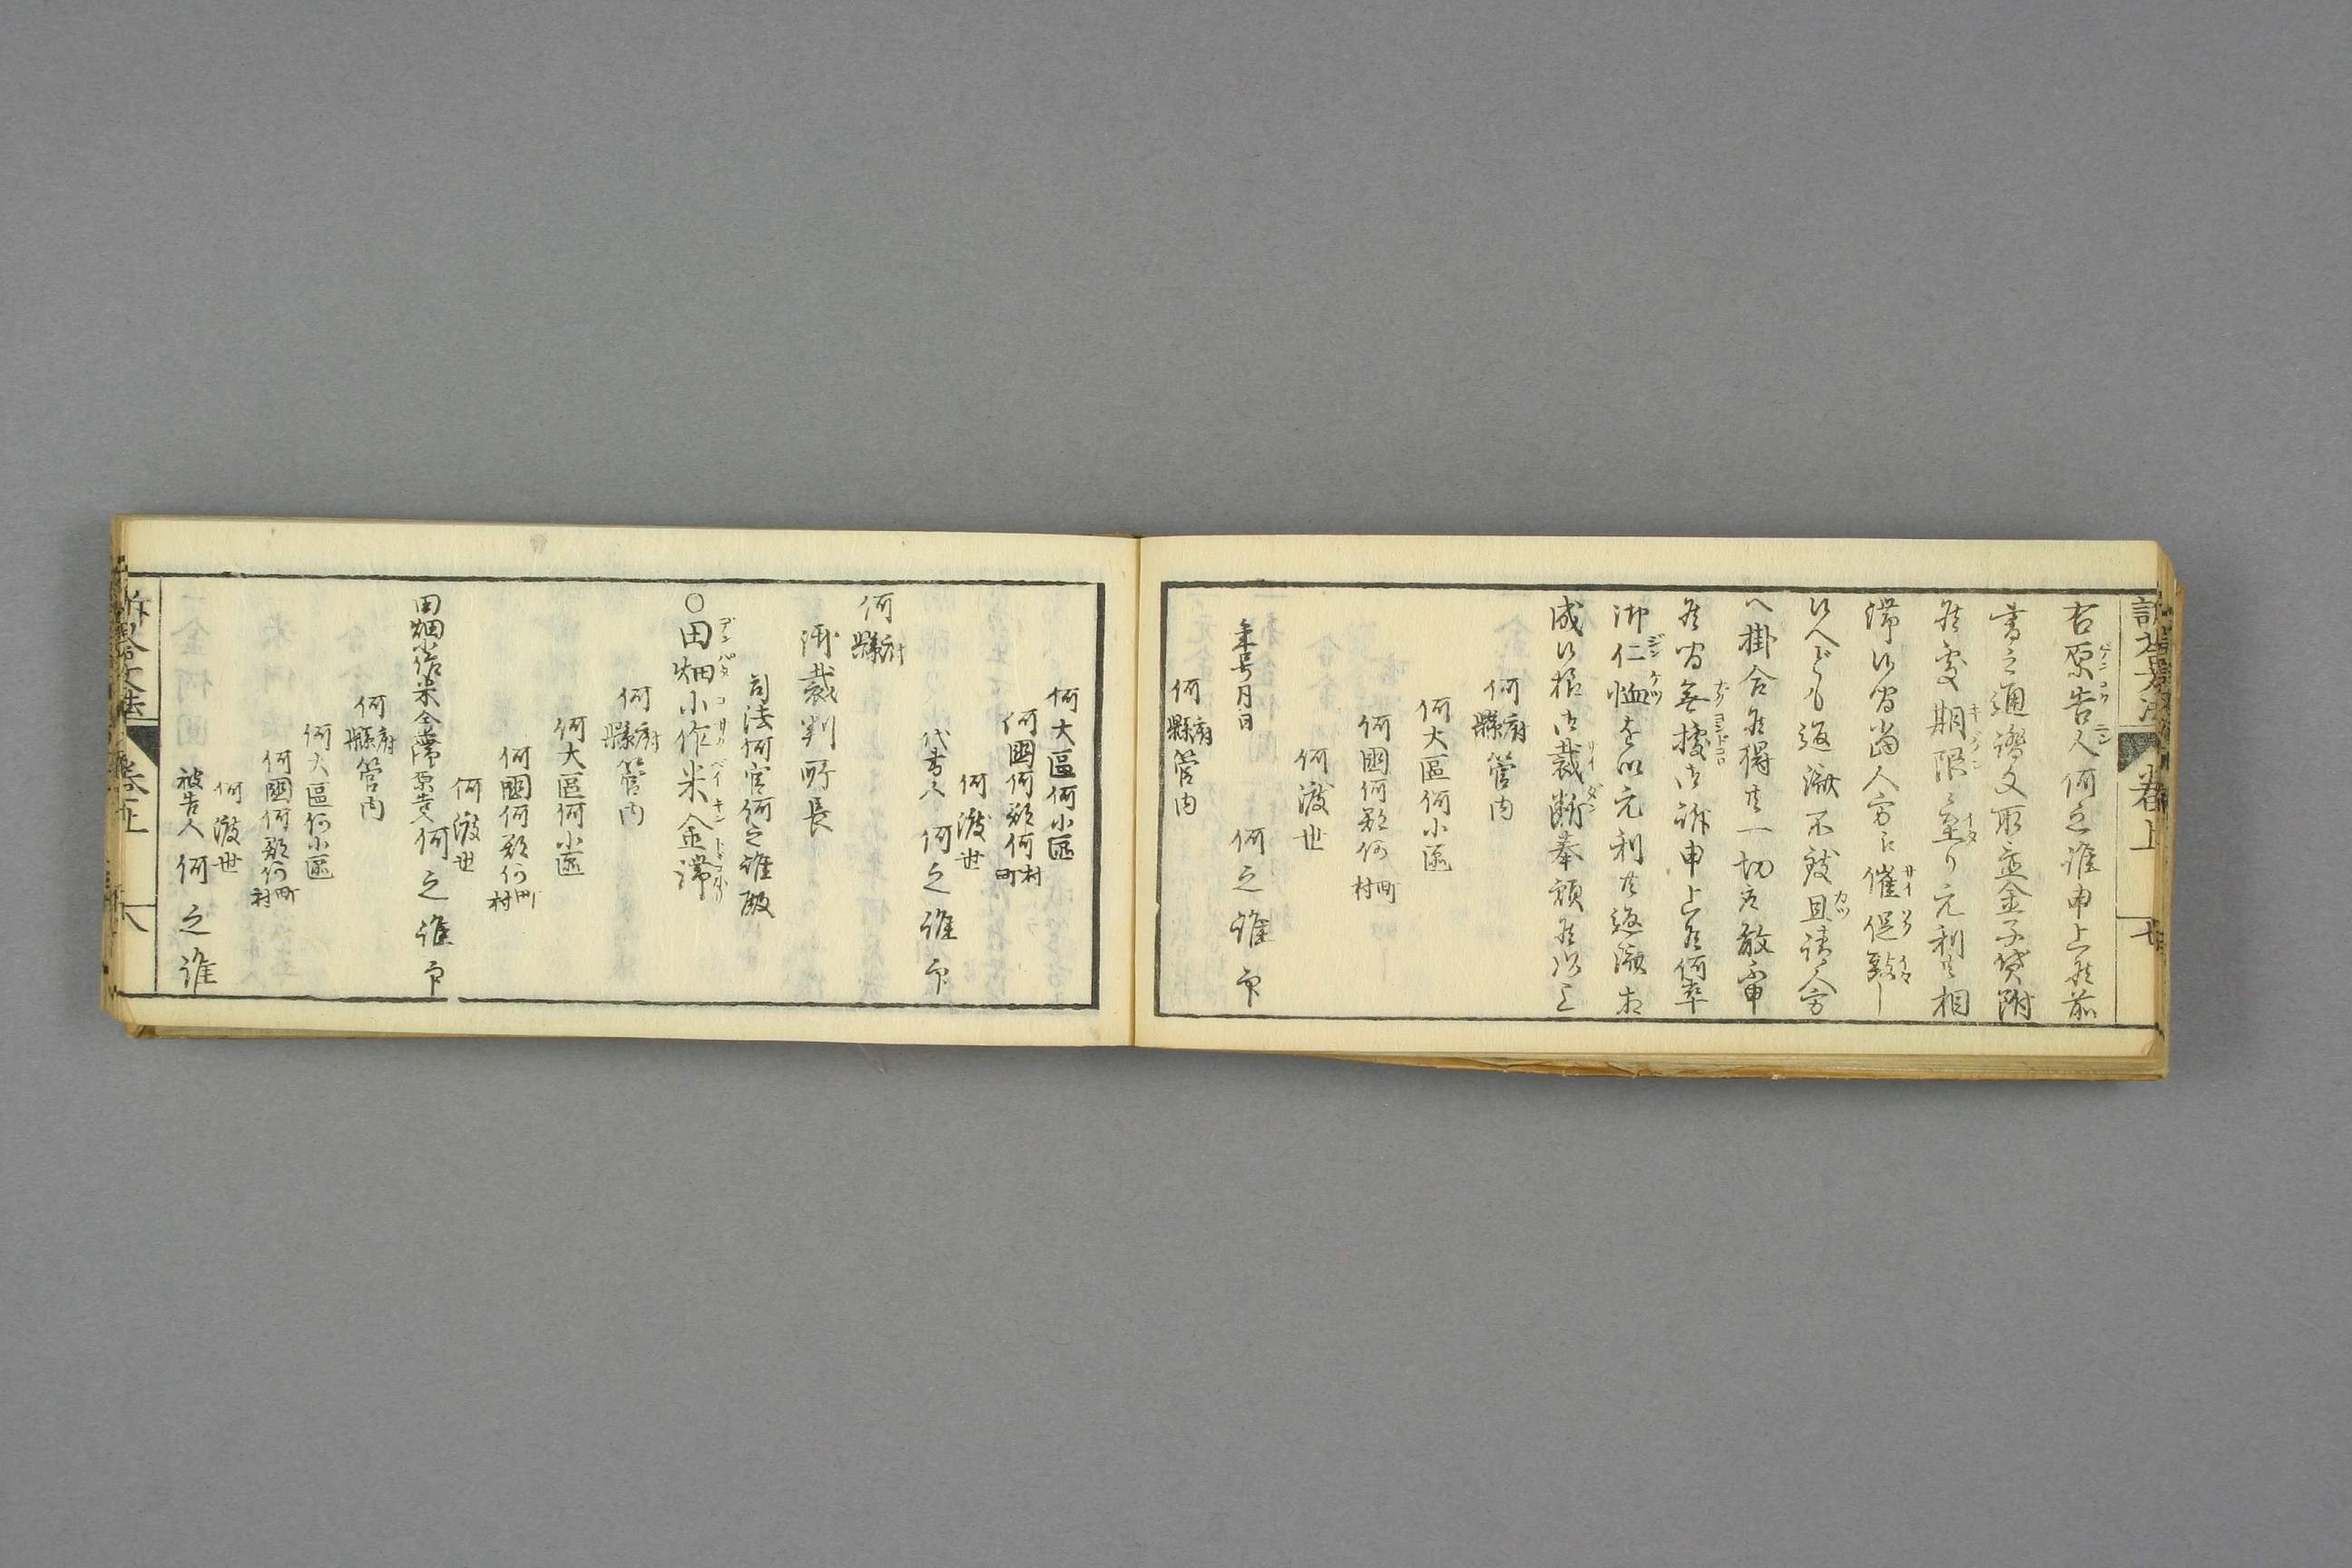 右原告人何之誰申上候前
書之通證文取置金子貸附
候處期限ニ至り元利共相
滞候間當人方江催促致し
候へども返濟不致且請人方
へ掛合候得共一切不取敢申
候間無據御訴申上候何卒
御仁恤を以元利共返濟相
成候様御裁断奉願候以上
何府縣管内
何大區何小區
何國何郡何町村
何渡世
年号月日 何之誰 印
何府縣管内
何大區何小區
何國何郡何村町
何渡世
代書人 何之誰 印
何府縣
御裁判所長
司法何官何之誰殿
○田畑小作米金滞
何府縣管内
何大區何小區
何國何郡何町村
何渡世
田畑小作米金滞原告人何之誰 印
何府縣管内
何大區何小區
何國何郡何町村
何渡世
被告人 何之誰